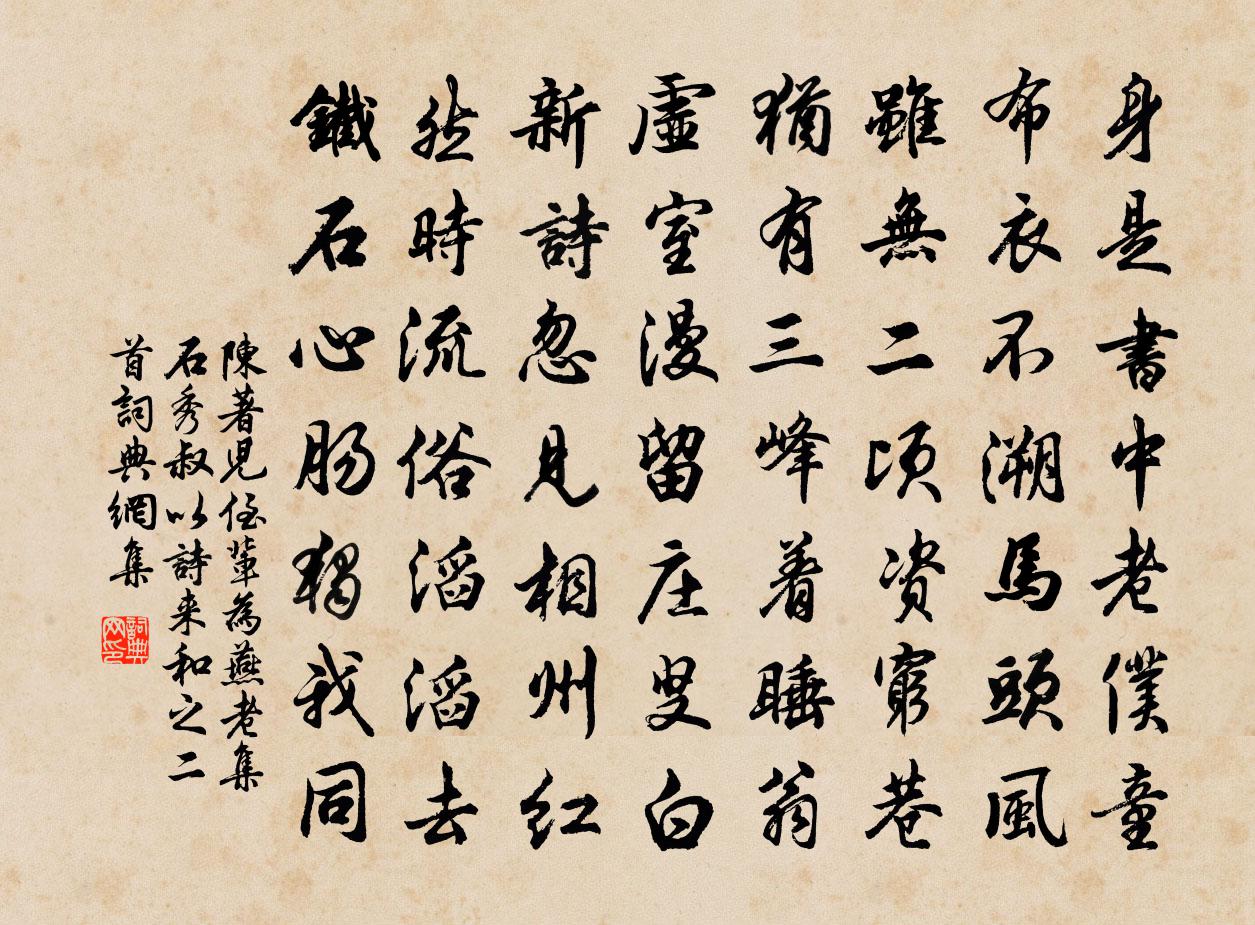 身是書中老僕童
布衣不溯馬頭風
雖無二頃資窮巷
猶有三峰着睡翁
虛室漫留庄叟白
新詩忽見相州紅
悠時流俗滔滔去
鐵石心腸獨我同
陳著兒侄輩為燕老集
石秀叔以詩来和之二
首詞典網集
詞典
网印